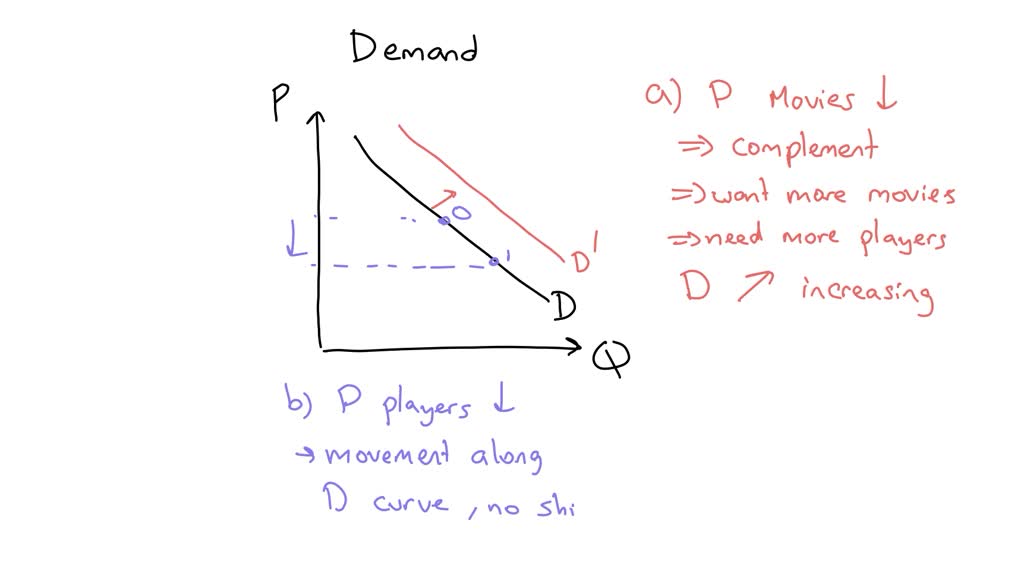 Demand
P
a) P Movies ↓
⇒ complement
⇒ want more movies
⇒ need more players
D ↗ increasing
0
1
D'
D
Q
b) P players ↓
→ movement along
D curve, no shi